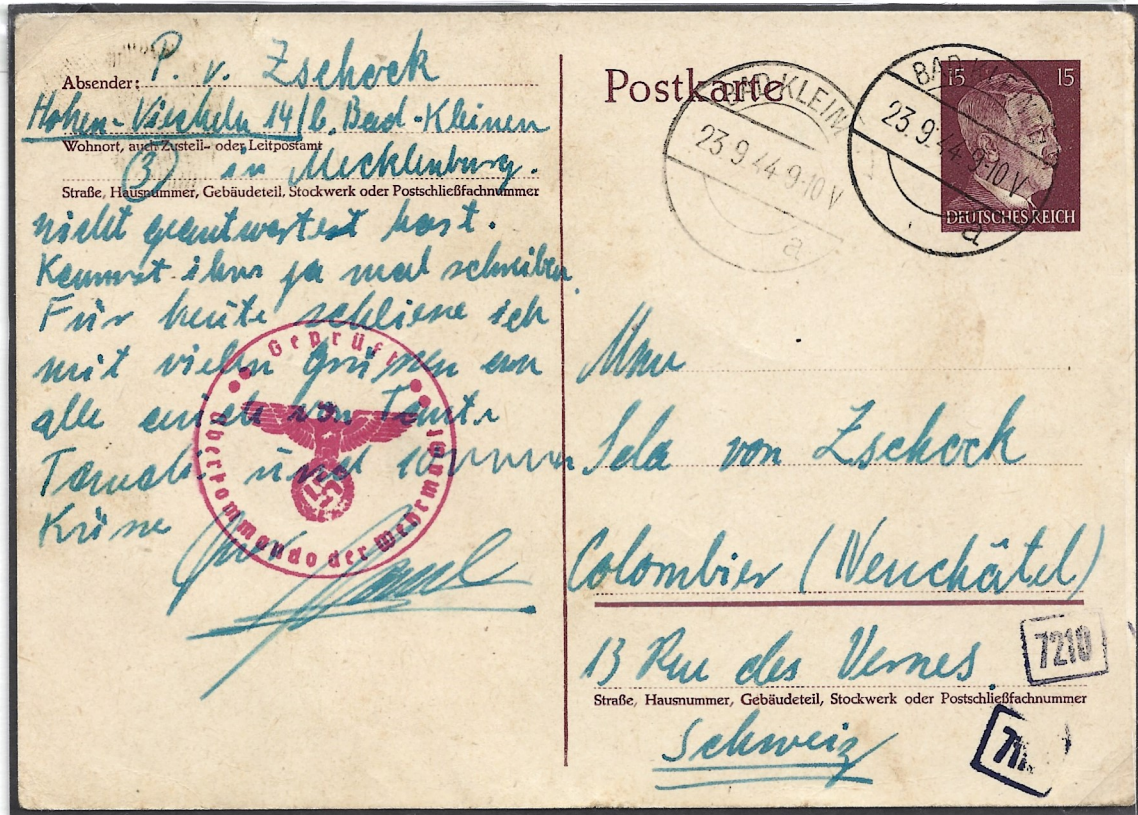 Absender: P. v. Zschock
Hohen-Viecheln 14/b. Bad-Kleinen
Wohnort, auch Zustell- oder Leitpostamt
(3) in Mecklenburg.
Straße, Hausnummer, Gebäudeteil, Stockwerk oder Postschließfachnummer
nicht geantwortet hast.
Kannst ihm ja mal schreiben.
Für heute schliesse ich
mit vielen Grüssen an
alle euch von Tante
und
Geprüft
Oberkommando der Wehrmacht
Postkarte
BAD KLEINEN
23.9.44.9-10 V
a
BAD KLEINEN
23.9.44.9-10 V
a
15 15
DEUTSCHES REICH
Ida von Zschock
Colombier (Neuchâtel)
13 Rue des Vernes.
Straße, Hausnummer, Gebäudeteil, Stockwerk oder Postschließfachnummer
Schweiz
7210